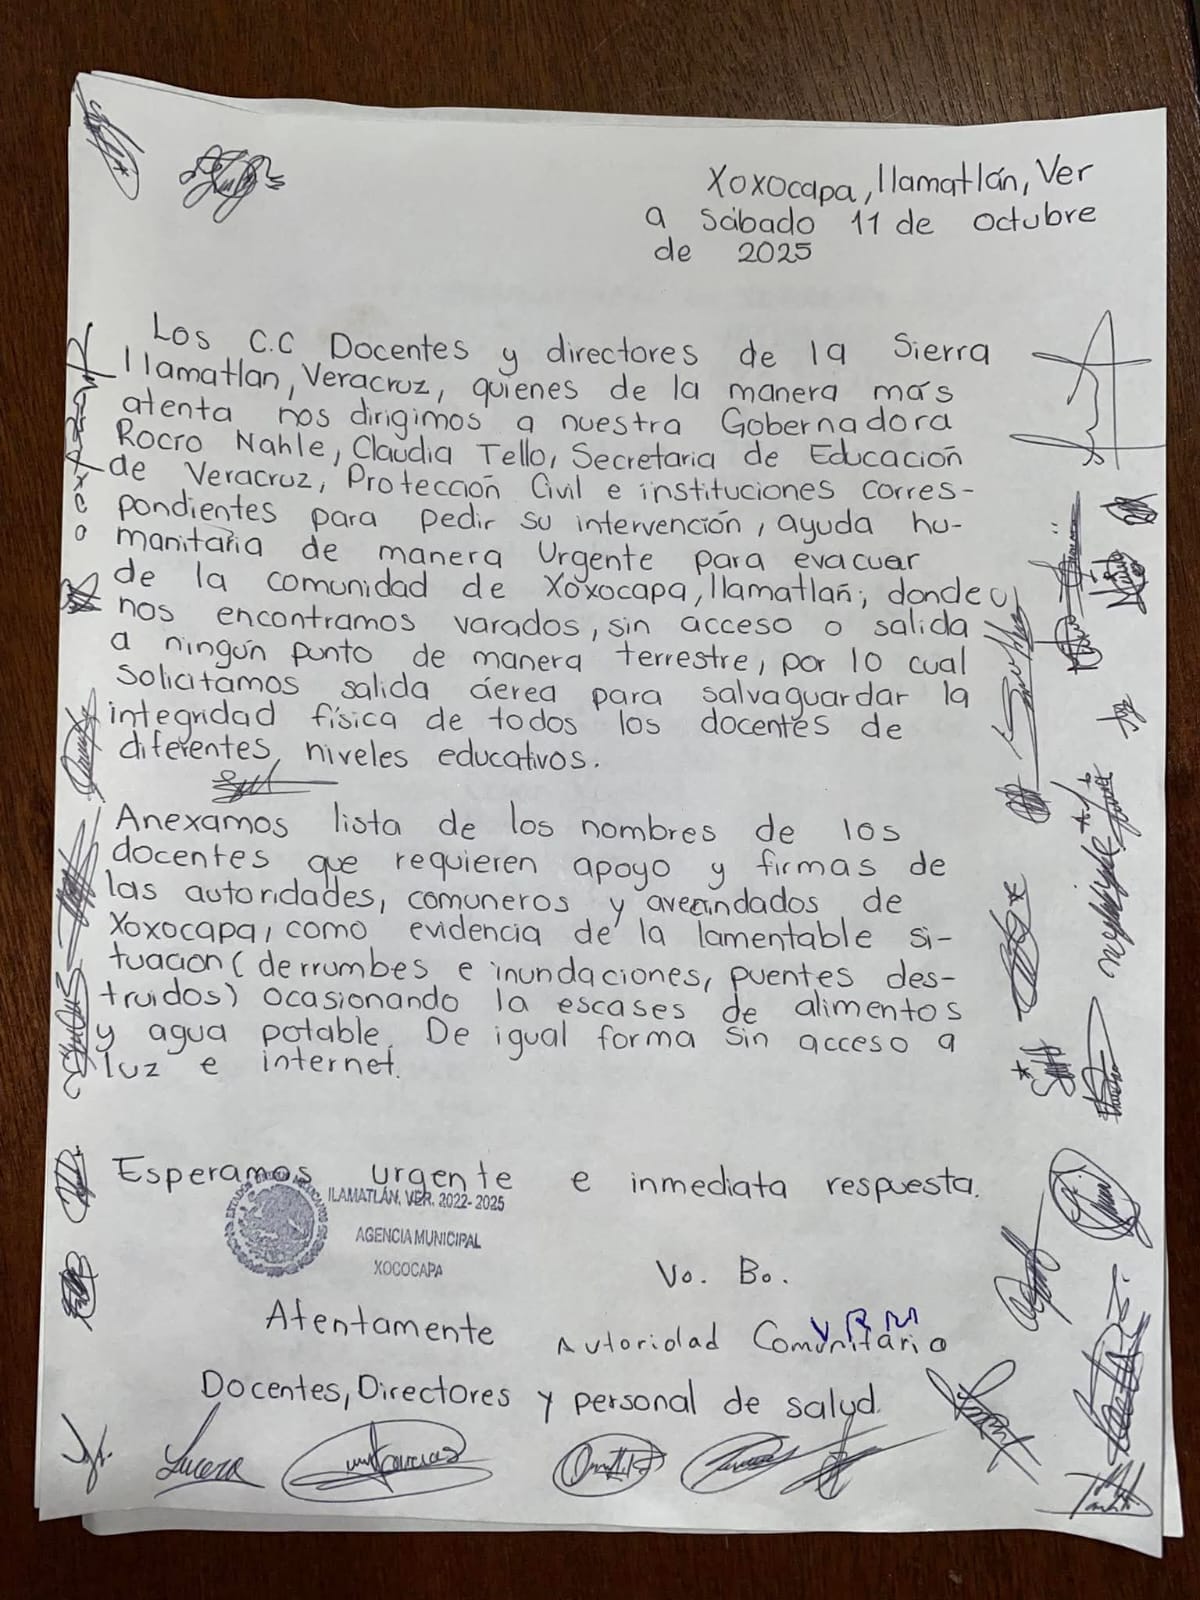 Xoxocapa, Ilamatlán, Ver
a Sábado 11 de octubre
de 2025
Los C.C Docentes y directores de la Sierra
Ilamatlan, Veracruz, quienes de la manera más
atenta nos dirigimos a nuestra Gobernadora
Rocro Nahle, Claudia Tello, Secretaria de Educación
de Veracruz, Protección Civil e instituciones corres-
pondientes para pedir su intervención, ayuda hu-
manitaria de manera Urgente para evacuar
de la comunidad de Xoxocapa, Ilamatlañ; donde
nos encontramos varados, sin acceso o salida
a ningún punto de manera terrestre, por lo cual
Solicitamos salida áerea para salvaguardar la
integridad física de todos los docentes de
diferentes niveles educativos.
Anexamos lista de los nombres de los
docentes que requieren apoyo y firmas de
las autoridades, comuneros y avecindados de
Xoxocapa, como evidencia de la lamentable si-
tuación (derrumbes e inundaciones, puentes des-
truidos) ocasionando la escases de alimentos
y agua potable. De igual forma sin acceso a
luz e internet.
Esperamos urgente e inmediata respuesta.
ILAMATLÁN, VER. 2022-2025
AGENCIA MUNICIPAL
XOCOCAPA
Vo. Bo.
V R M
Atentamente
Autoridad Comunitaria
Docentes, Directores y personal de salud.
Lucera